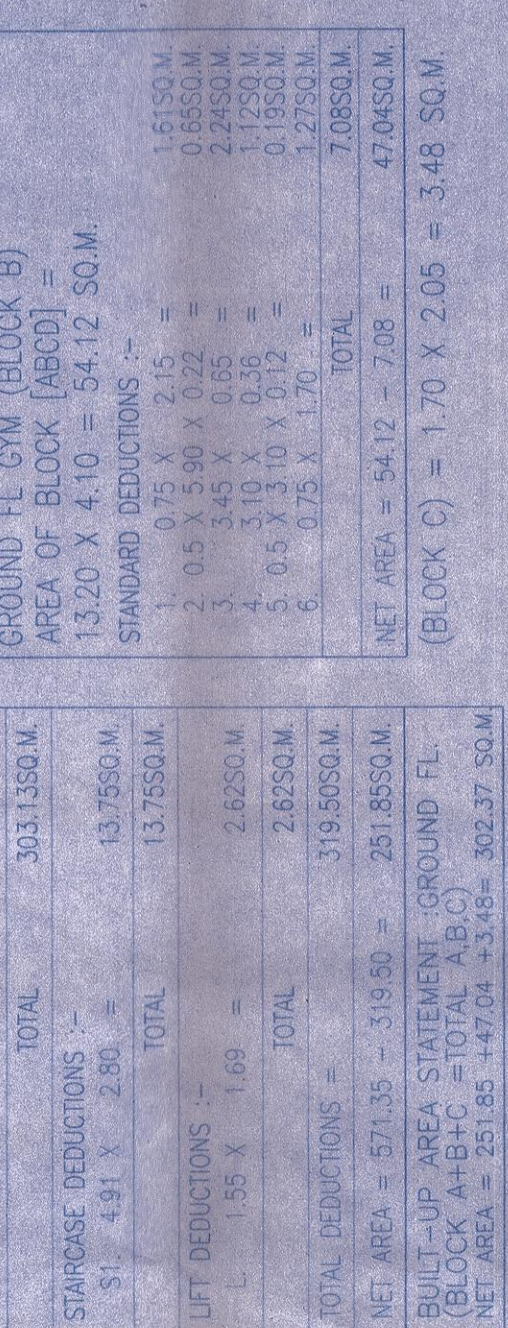 TOTAL 303.13SQ.M.
STAIRCASE DEDUCTIONS :-
S1. 4.91 X 2.80 = 13.75SQ.M.
TOTAL 13.75SQ.M.
LIFT DEDUCTIONS :-
L. 1.55 X 1.69 = 2.62SQ.M.
TOTAL 2.62SQ.M.
TOTAL DEDUCTIONS = 319.50SQ.M.
NET AREA = 571.35 - 319.50 = 251.85SQ.M.
BUILT-UP AREA STATEMENT :GROUND FL.
(BLOCK A+B+C =TOTAL A,B,C)
NET AREA = 251.85 +47.04 +3.48= 302.37 SQ.M
GROUND FL GYM (BLOCK B)
AREA OF BLOCK [ABCD] =
13.20 X 4.10 = 54.12 SQ.M.
STANDARD DEDUCTIONS :-
1. 0.75 X 2.15 = 1.61SQ.M.
2. 0.5 X 5.90 X 0.22 = 0.65SQ.M.
3. 3.45 X 0.65 = 2.24SQ.M.
4. 3.10 X 0.36 = 1.12SQ.M.
5. 0.5 X 3.10 X 0.12 = 0.19SQ.M.
6. 0.75 X 1.70 = 1.27SQ.M.
TOTAL 7.08SQ.M.
NET AREA = 54.12 - 7.08 = 47.04SQ.M.
(BLOCK C) = 1.70 X 2.05 = 3.48 SQ.M.